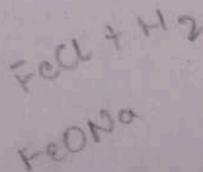 FeCl + H2
FeONa